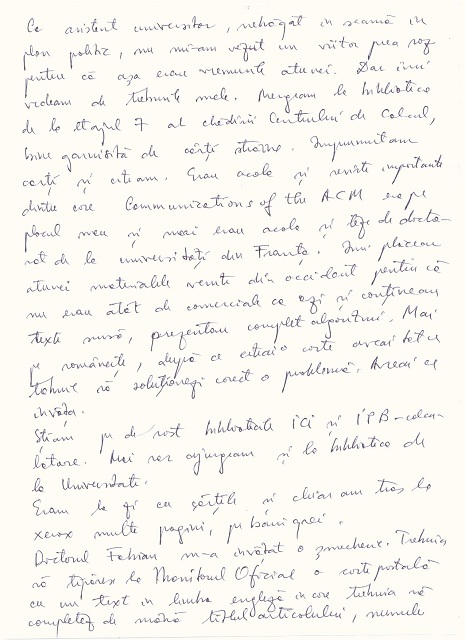 Ca asistent universitar, nebăgat in seamă in
plan politic, nu mi-am văzut un viitor prea roz
pentru că așa erau vremurile atunci. Dar imi
vedeam de treburile mele. Mergeam la biblioteca
de la etajul 7 al clădirii Centrului de Calcul,
bine garnisită de cărți străine. Imprumutam
cărți și citeam. Erau acolo și reviste importante
dintre care Communications of the ACM era pe
placul meu și mai erau acolo și teze de docto-
rat de la universități din Franța. Imi plăceau
atunci materialele venite din occident pentru că
nu erau atât de comerciale ca azi și conțineau
texte sursă, prezentau complet algoritmi. Mai
pe românește, după ce citeai o carte aveai tot ce
trebuie să soluționezi corect o problemă. Aveai ce
invăța.
Știam pe de rost bibliotecile ICI și IPB-calcu-
latoare. Mai rar ajungeam și la biblioteca de
la Universitate.
Eram la zi cu cărțile și chiar am tras la
xerox multe pagini, pe bani grei.
Doctorul Fabian m-a invățat o șmecherie. Trebuia
să tipăresc la Monitorul Oficial o carte poștală
cu un text in limba engleză in care trebuia să
completez de mână titlul articolului, numele